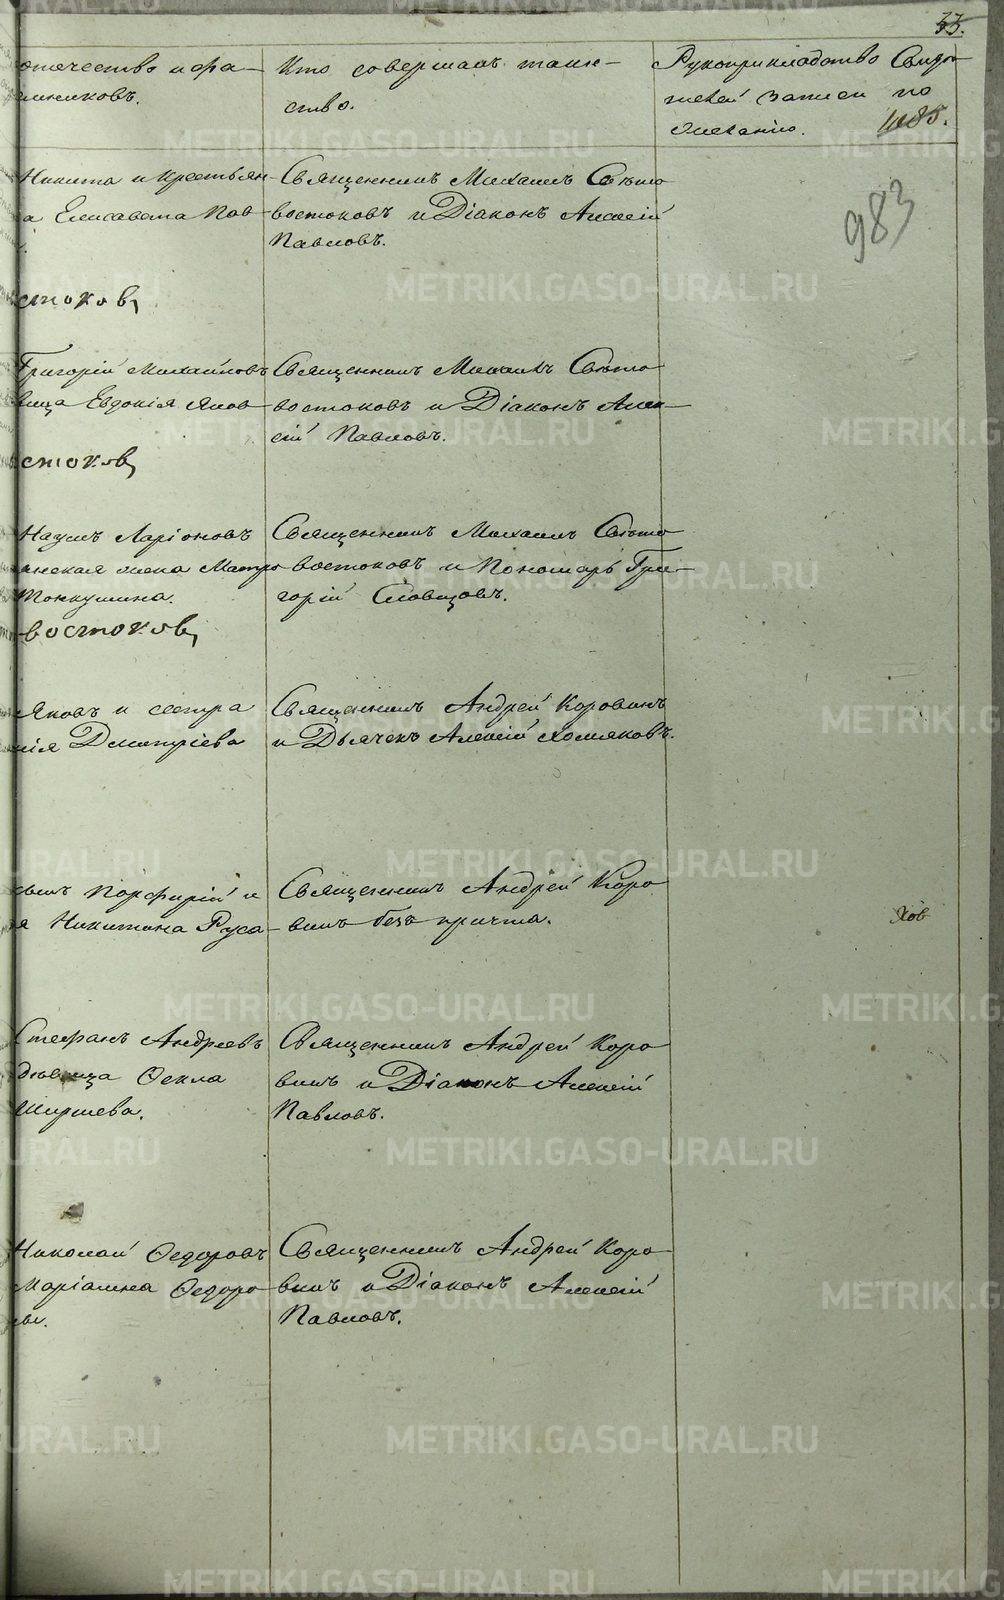 33.
отечество и фа-
миликовъ.
Кто совершалъ таин-
ство.
Рукоприкладство Свидѣ-
телей записи по
желанію.
1085.
983
Никита и крестьян-
а Елисавета Пав-
Священникъ Михаилъ Свѣто
востоковъ и Діаконъ Алексій
Павловъ.
стоковъ
Григорій Михайловъ
вица Евдокія Яков-
Священникъ Михаилъ Свѣто
востоковъ и Діаконъ Алек-
сій Павловъ.
стоковъ
Наумъ Ларіоновъ
янская жена Матро
Священникъ Михаилъ Свѣто
востоковъ и Пономарь Гри-
горій Словцовъ.
востоковъ
Яковъ и сестра
нія Дмитріева
Священникъ Андрей Коровинъ
и Дьячекъ Алексій Хомяковъ.
сынъ Порфирій и
я Никитина Руса-
Священникъ Андрей Коро
винъ безъ причта.
ковъ
Стефанъ Андреевъ
дѣвица Ѳекла
Ширшева.
Священникъ Андрей Коро
винъ и Діаконъ Алексій
Павловъ.
Николай Ѳедоровъ
Маріамна Ѳедоро
вы.
Священникъ Андрей Коро
винъ и Діаконъ Алексій
Павловъ.
METRIKI.GASO-URAL.RU